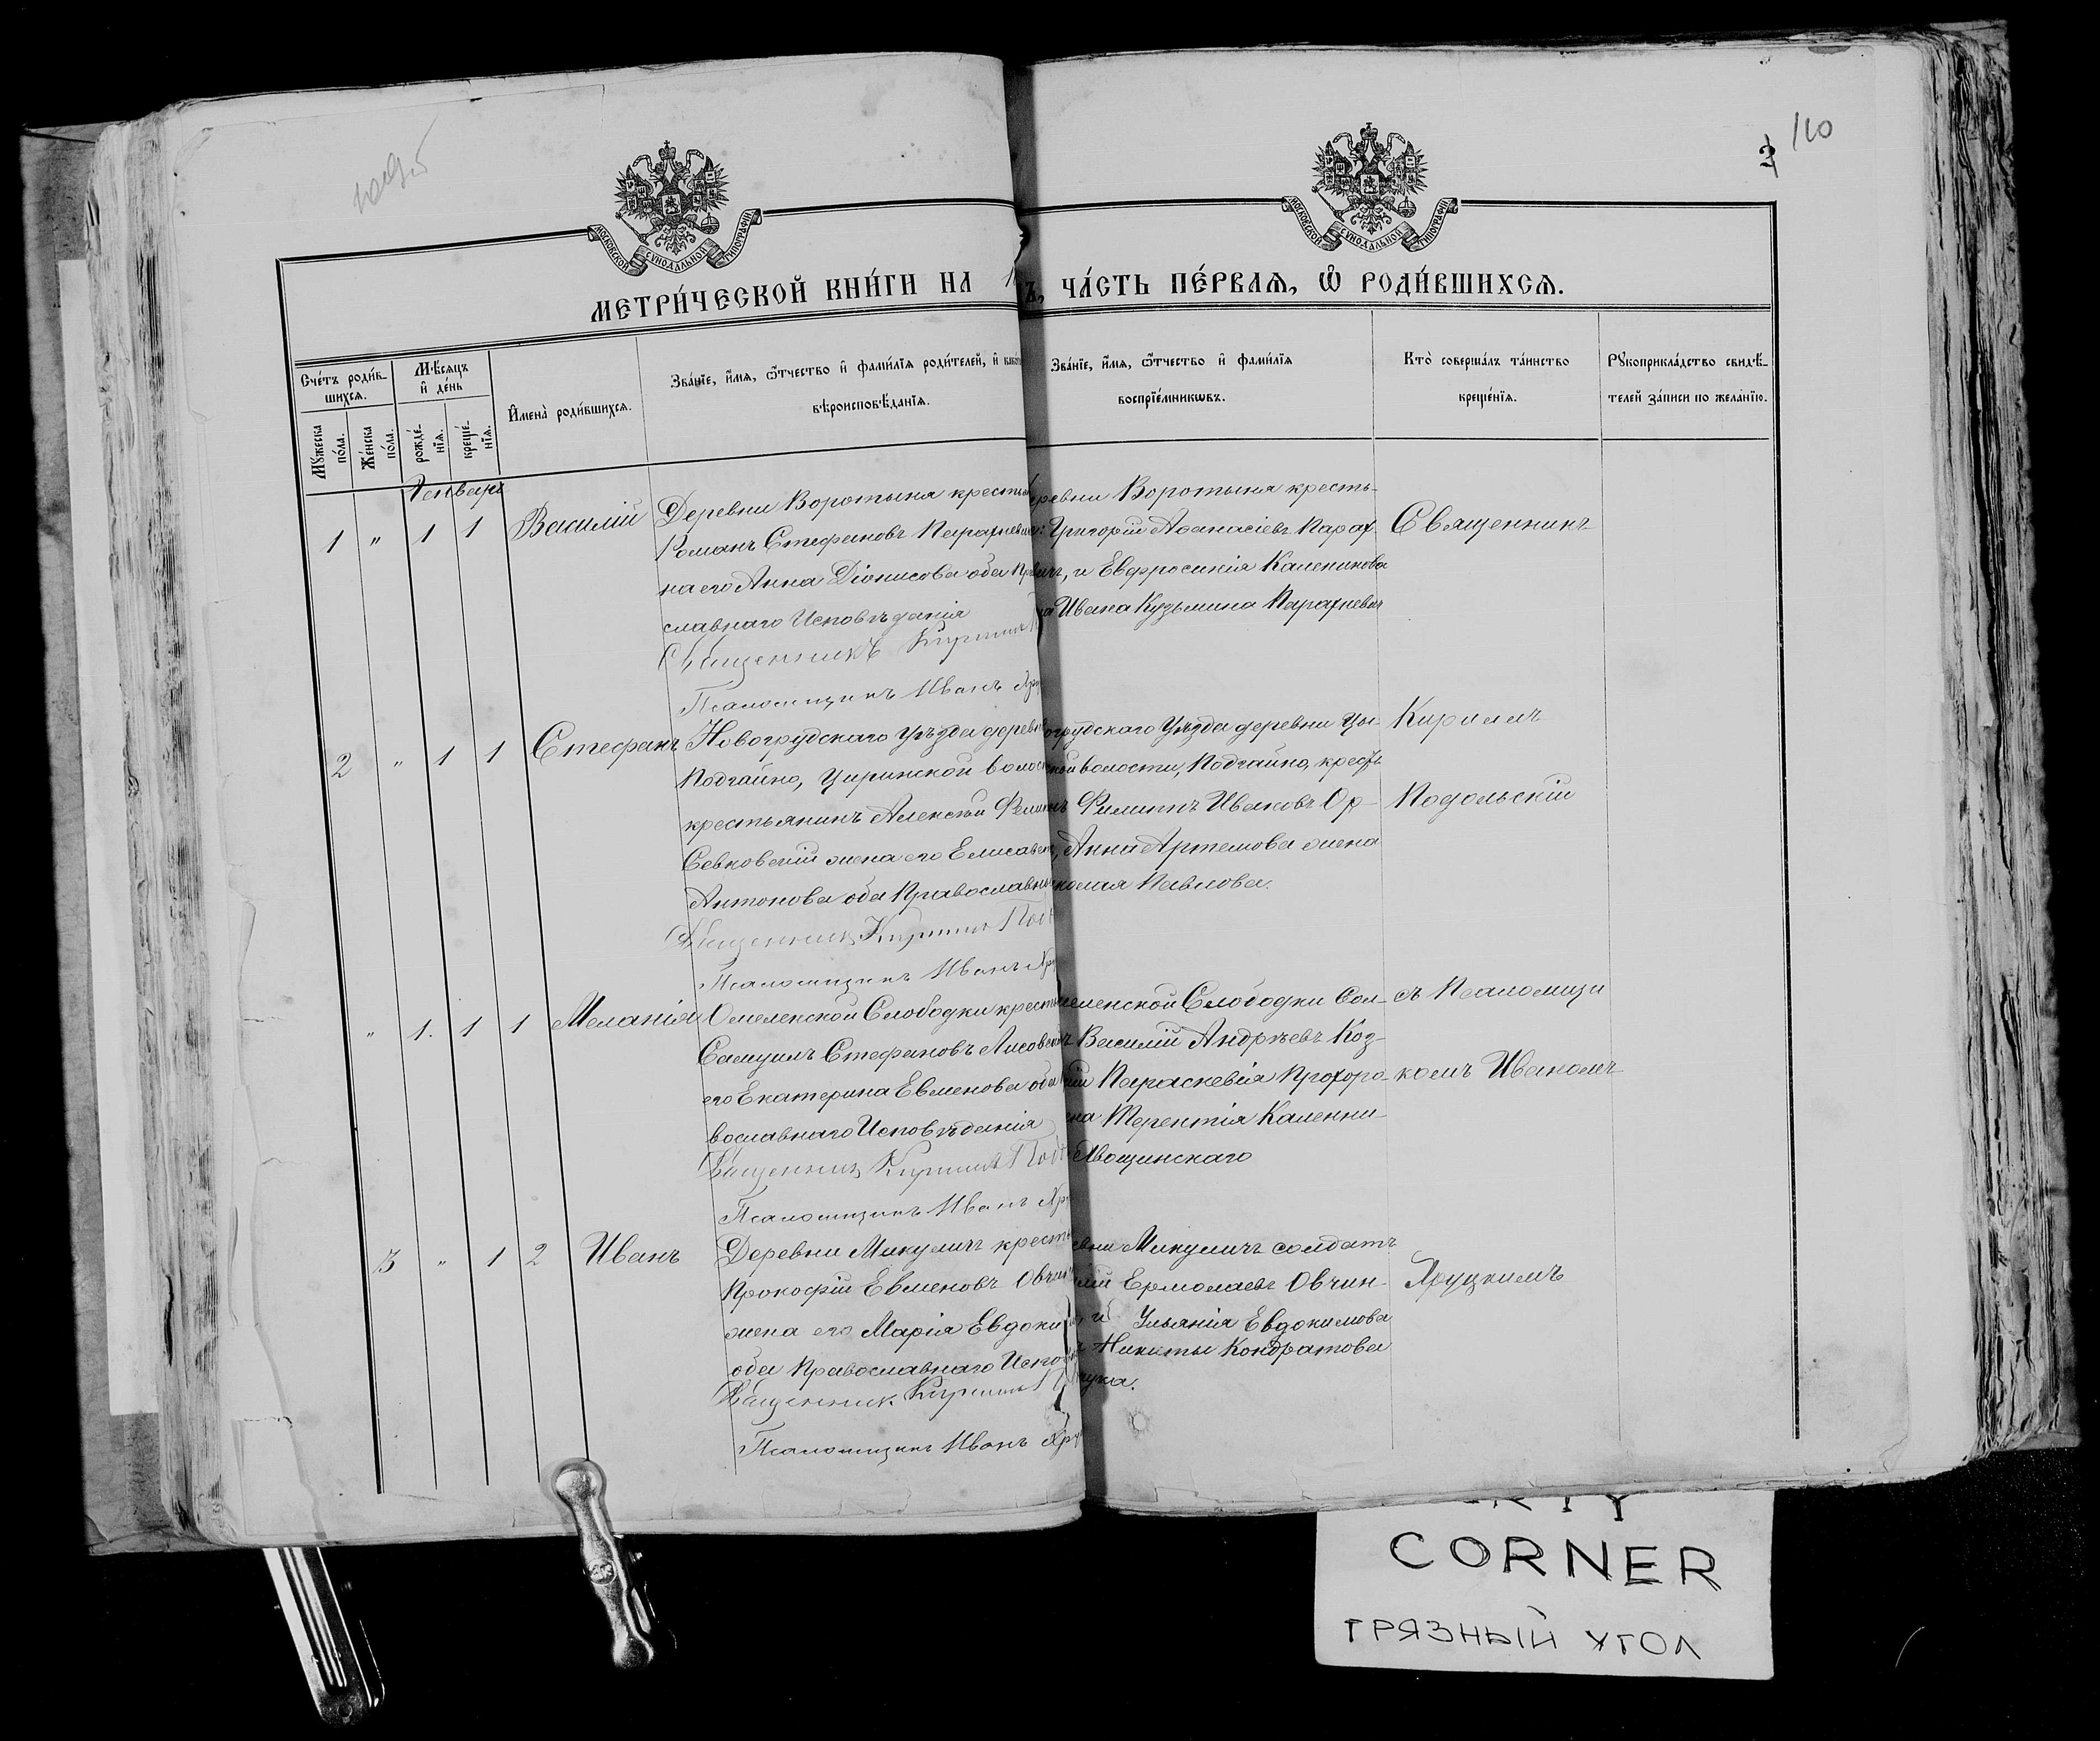 110
МОСКОВСКОЙ СУНОДАЛЬНОЙ ТИПОГРАФІИ
МОСКОВСКОЙ СУНОДАЛЬНОЙ ТИПОГРАФІИ
МЕТРИ́ЧЕСКОЙ КНИ́ГИ НА 1
Ъ, ЧА́СТЬ ПЕ́РВАѦ, Ѡ҆ РОДИ́ВШИХСѦ.
Сче́тъ роди́в-
шихсѧ.
Мѣ́сѧцъ
и҆ де́нь
Мꙋ́жеска
по́ла.
Же́нска
по́ла.
рожде́-
нїѧ.
креще́-
нїѧ.
И҆мена̀ роди́вшихсѧ.
Зва́нїе, и҆́мѧ, ѻ҆́тчество и҆ фами́лїѧ роди́телей, и҆
вѣроисповѣ́данїѧ.
Зва́нїе, и҆́мѧ, ѻ҆́тчество и҆ фами́лїѧ
воспрїе́мникѡвъ.
Кто̀ соверша́лъ та́инство
креще́нїѧ.
Рꙋкоприкла́дство свидѣ́-
телей за́писи по жела́нїю.
Генварь
1 " 1 1 Василій
Деревни Воротына крестья
Романъ Стефановъ Парахневич
на его Анна Діонисова оба Пра
славнаго Исповѣданія
Священникъ Кириллъ П
Псаломщикъ Иванъ Хру
еревни Воротына кресть-
Григорій Аѳанасіевъ Парах
вичъ, и Евфросинія Каленикова
на Ивана Кузьмина Парахневич
Священникъ
2 " 1 1 Стефанъ
Новогрудскаго Уѣзда деревн
Подчайно, Циринской волост
крестьянинъ Алексѣй Филип
Севковскій жена его Елисавет
Антонова оба Православны
Священникъ Кириллъ Под
Псаломщикъ Иванъ Хру
огрудскаго Уѣзда деревни Ци-
ской волости, Подчайно, крест
Филиппъ Ивановъ Ор-
, Анна Артемова жена
колая Павлова.
Кириллъ
Подольскій
" 1. 1 1 Меланія
Омеленской Слободки кресть
Самуилъ Стефановъ Лисовск
его Екатерина Евменова оба
вославнаго Исповѣданія
Священникъ Кириллъ Под
Псаломщикъ Иванъ Хру
меленской Слободки Сол-
Василій Андреевъ Коз-
кій Параскевія Прохоро-
на Терентія Каленни-
Явощинскаго
съ Псаломщи
комъ Иваномъ
3 " 1 2 Иванъ
Деревни Микуличъ кресть
Прокофій Евменовъ Овчин
жена его Марія Евдоки
оба Православнаго Испов
Священникъ Кириллъ П
Псаломщикъ Иванъ Хру
вни Микуличъ солдатъ
лій Ермолаевъ Овчин-
и Ульянія Евдокимова
Никиты Кондратова
чука.
Хруцкимъ
CORNER
ГРЯЗНЫЙ УГОЛ